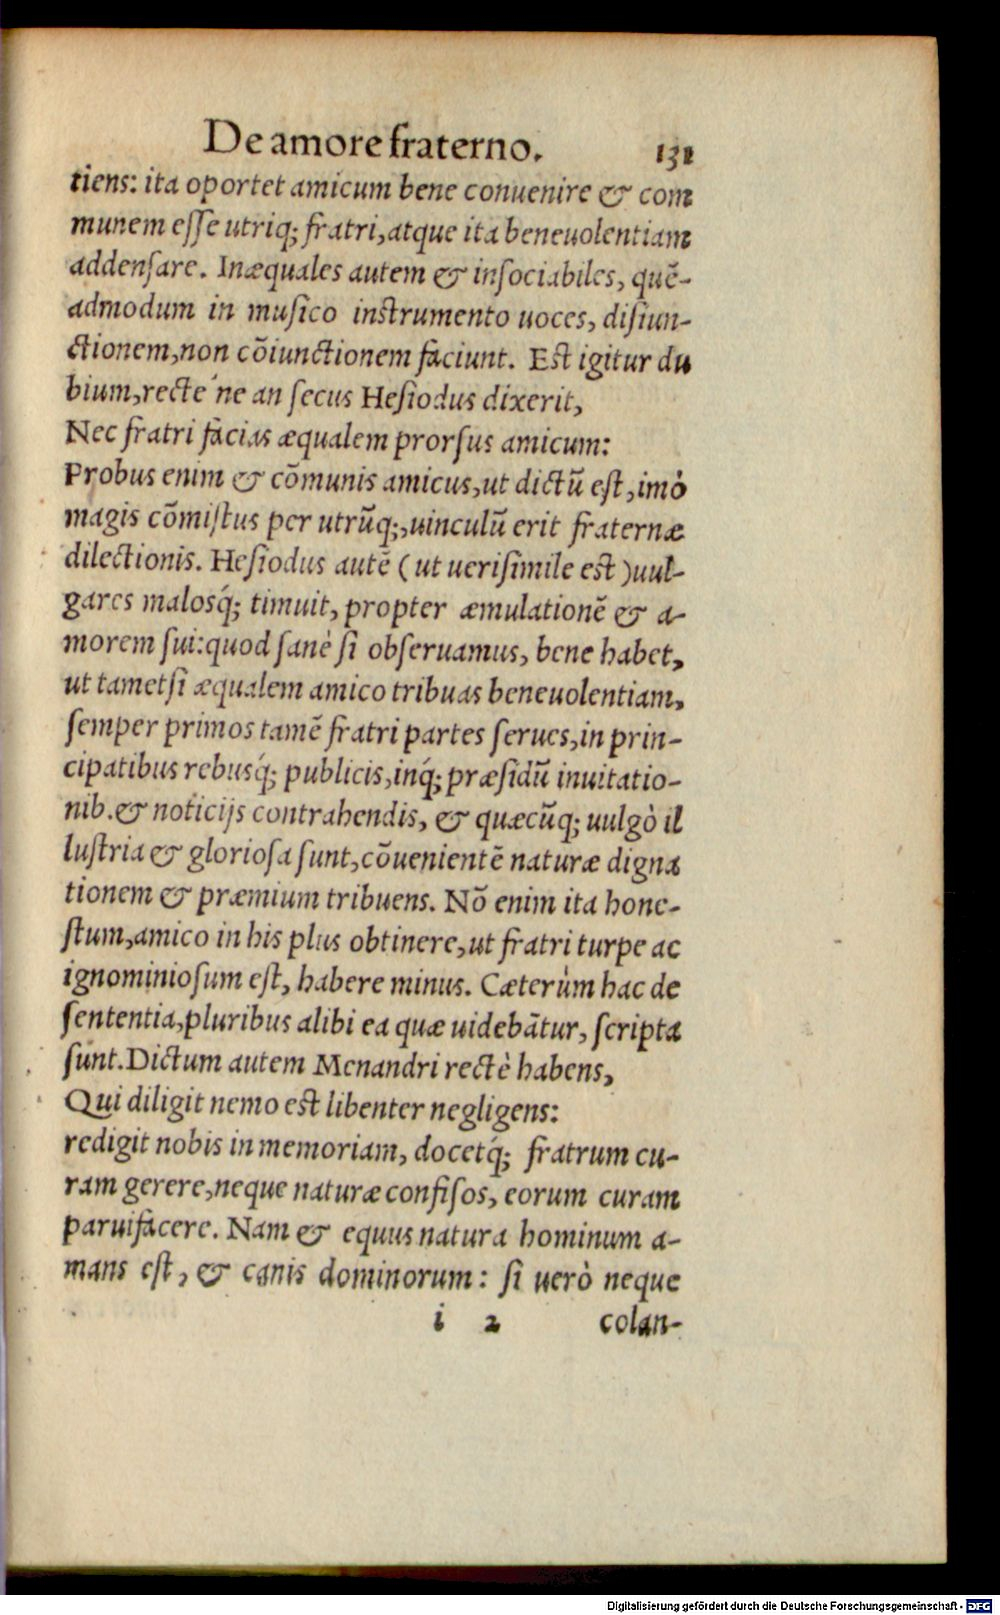 De amore fraterno. 131
tiens: ita oportet amicum bene conuenire & com
munem esse utriq; fratri, atque ita beneuolentiam
addensare. Inæquales autem & insociabiles, quē-
admodum in musico instrumento uoces, disiun-
ctionem, non cōiunctionem faciunt. Est igitur du
bium, recte´ne an secus Hesiodus dixerit,
Nec fratri facias æqualem prorsus amicum:
Probus enim & cōmunis amicus, ut dictū est, imò
magis cōmistus per utrūq;, uinculū erit fraternæ
dilectionis. Hesiodus autē (ut uerisimile est) uul-
gares malosq́; timuit, propter æmulationē & a-
morem sui: quod sanè si obseruamus, bene habet,
ut tametsi æqualem amico tribuas beneuolentiam,
semper primos tamē fratri partes serues, in prin-
cipatibus rebusq́; publicis, inq́; præsidū inuitatio-
nib. & noticijs contrahendis, & quæcūq; uulgò il
lustria & gloriosa sunt, cōuenientē naturæ digna
tionem & præmium tribuens. Nō enim ita hone-
stum, amico in his plus obtinere, ut fratri turpe ac
ignominiosum est, habere minus. Cæterùm hac de
sententia, pluribus alibi ea quæ uidebātur, scripta
sunt. Dictum autem Menandri rectè habens,
Qui diligit nemo est libenter negligens:
redigit nobis in memoriam, docetq́; fratrum cu-
ram gerere, neque naturæ confisos, eorum curam
paruifacere. Nam & equus natura hominum a-
mans est, & canis dominorum: si uerò neque
i 2 colan-
Digitalisierung gefördert durch die Deutsche Forschungsgemeinschaft - DFG